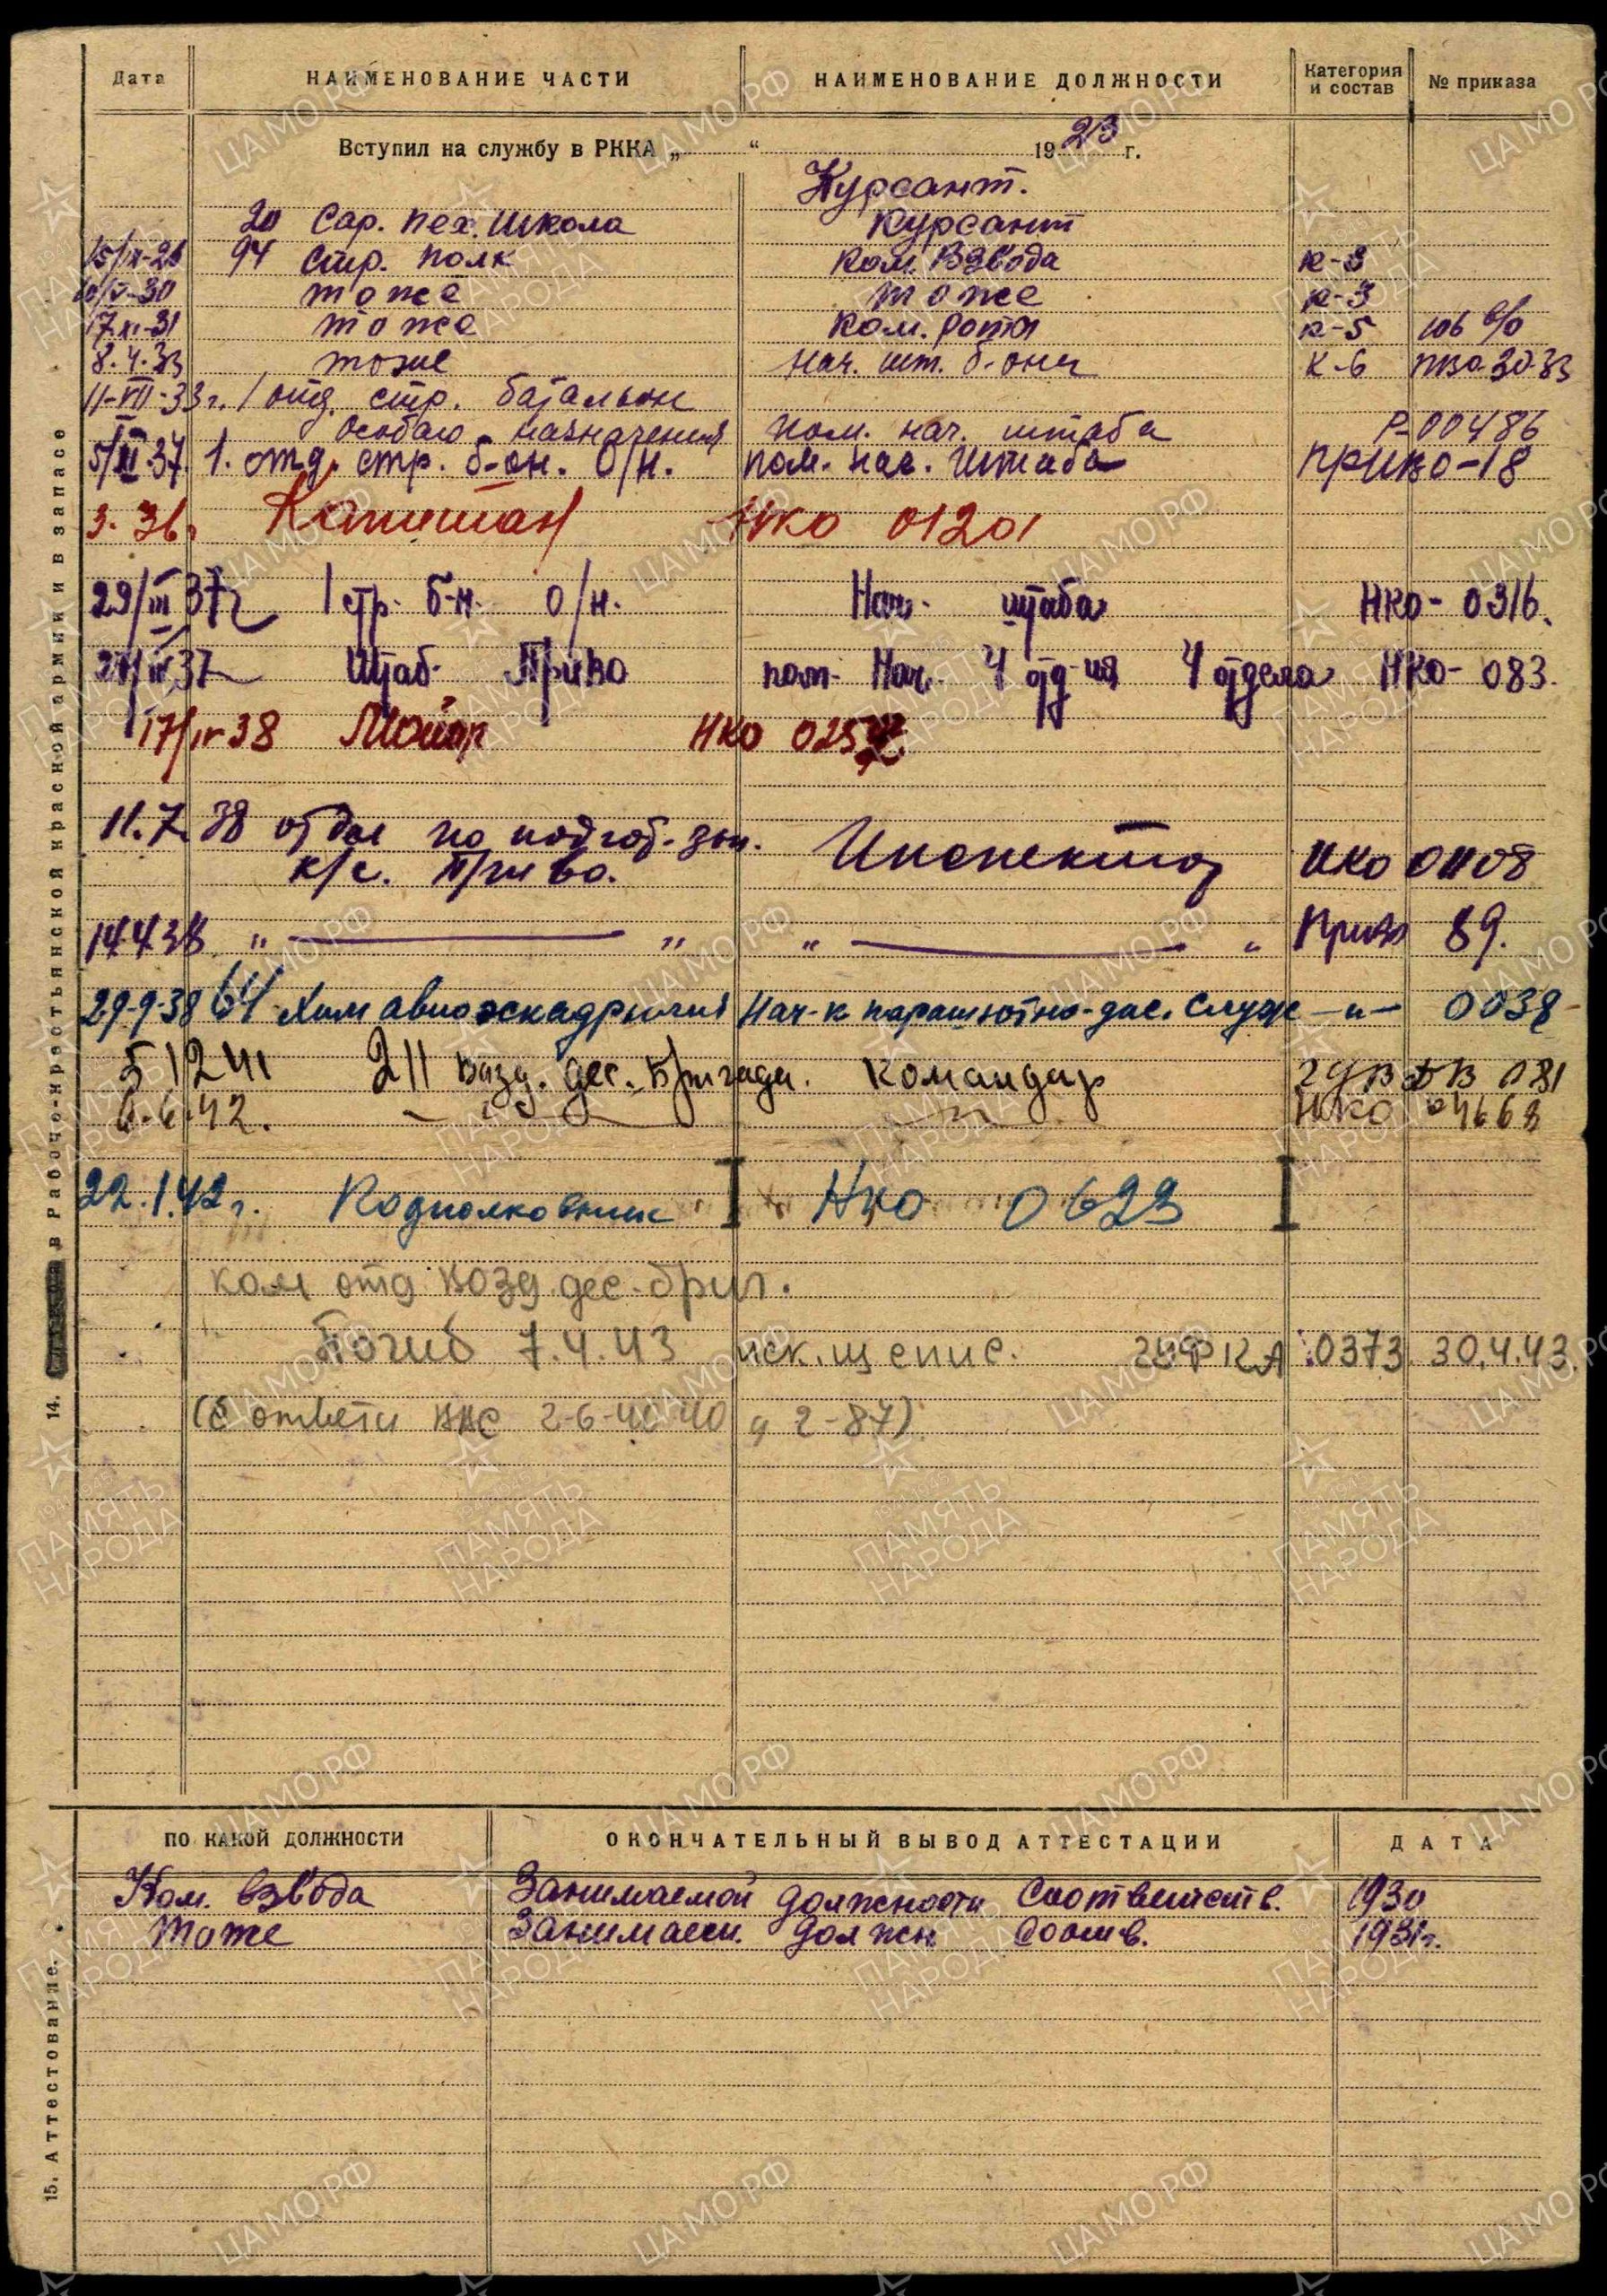 Дата НАИМЕНОВАНИЕ ЧАСТИ НАИМЕНОВАНИЕ ДОЛЖНОСТИ Категория и состав № приказа
Вступил на службу в РККА „ “ 1923 г.
Курсант.
20 Сар. пех. школа курсант
94 стр. полк Ком. взвода к-3
тоже тоже к-3
17.XI-31 тоже Ком. роты к-5
8.4.33 тоже Нач. шт. б-она К-6 ПВО-30-33
11-VII-33 г. 1 отд. стр. батальон
особаго назначения пом. нач. штаба Р-00486
5/III.37. 1. отд. стр. б-он. О/Н. пом. нач. штаба ПРИВО-18
3. 36г. Капитан НКО 01201
29/III 37г 1 стр. б-н. О/Н. Нач. штаба НКО-0316.
Штаб ПриВО пом. Нач. 4 отд-ия 4 отдела НКО-083.
17/IV 38 Майор НКО
11.7.38 отдел по подгот.
к/с. ПриВо. Инспектор НКО 01108
14.4.38 „ — „ „ — „ Приво 89.
29-9-38 64 Хим авиоэскадрилия Нач-к парашютно-дес. служ —и— 0038
5 12 41 211 возд. дес. Бригада. Командир 081
6.6.42. —„— —„— НКО 04668
22.1.42 г. Подполковник НКО 0623
ком отд возд. дес. бриг.
Погиб 7.4.43 иск. из спис. ГУФКА 0373 30.4.43.
(С ответа ВВС 2-6-40
14. в Рабоче-крестьянской красной армии и в запасе
ПО КАКОЙ ДОЛЖНОСТИ ОКОНЧАТЕЛЬНЫЙ ВЫВОД АТТЕСТАЦИИ ДАТА
Ком. взвода Занимаемой должности Соответств. 1930
тоже Занимаем. должн Соотв. 1931г.
15. Аттестование.
ЦАМО.РФ
ПАМЯТЬ НАРОДА